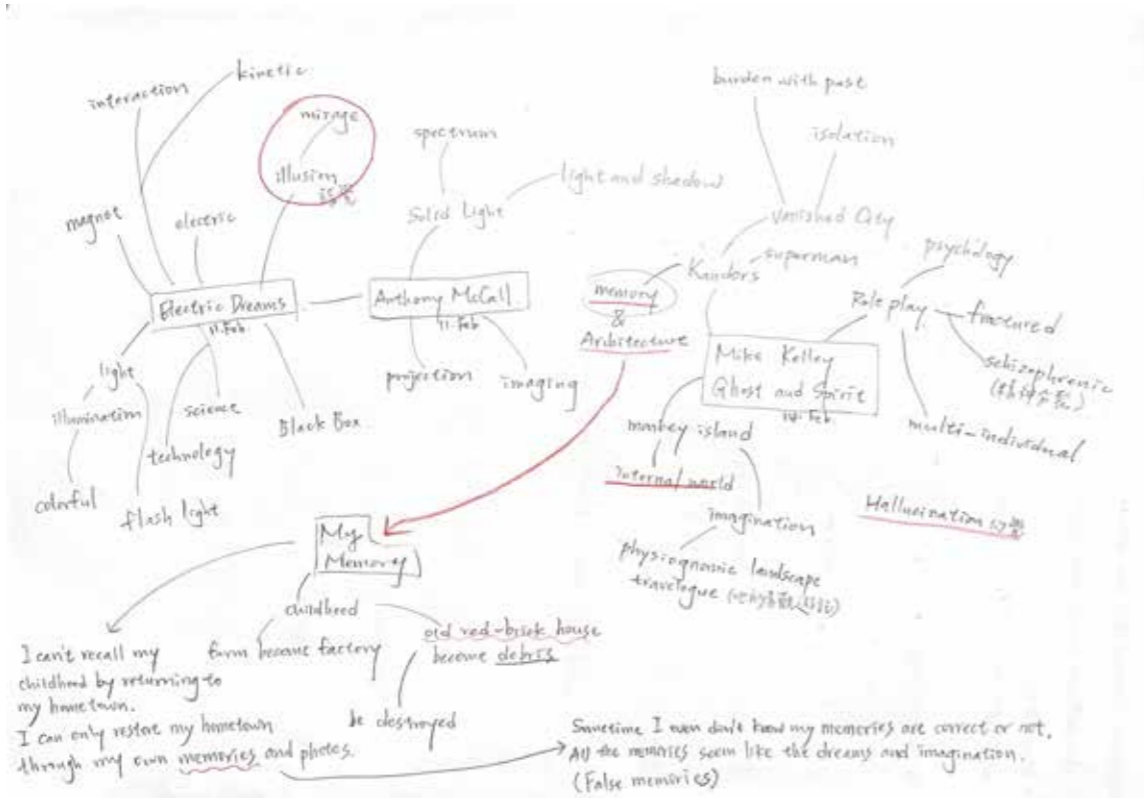 kinetic
interaction
mirage
illusion
magnet
electric
Electric Dreams
11.Feb
light
illumination
colorful
flash light
science
technology
Black Box
spectrum
Solid Light
light and shadow
Anthony McCall
11.Feb
projection
imaging
burden with past
isolation
Vanished City
superman
Kandors
memory
&
Architecture
Mike Kelley
Ghost and Spirit
14.Feb
psychology
Role play
fractured
schizophrenic
multi-individual
monkey island
internal world
imagination
physiognomic landscape
travelogue
Hallucination 幻觉
My
Memory
childhood
farm become factory
old red-brick house
become debris
be destroyed
I can't recall my
childhood by returning to
my hometown.
I can only restore my hometown
through my own memories and photos.
Sometime I even don't know my memories are correct or not.
All the memories seem like the dreams and imagination.
(False memories)